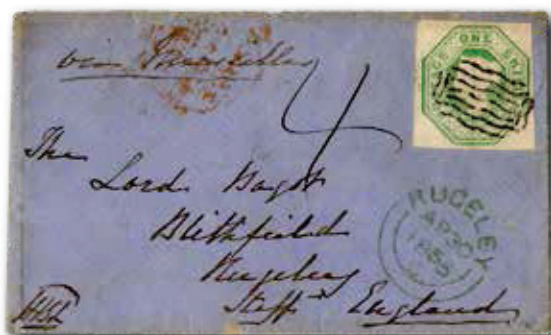 via Marseilles
ONE SHILLING
4
The
Lord Bagot
Blithfield
Rugeley
Staffs England
RUGELEY
AP 30
1855